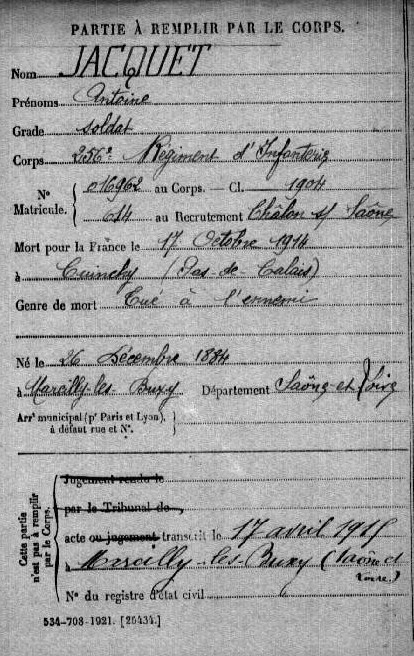 PARTIE À REMPLIR PAR LE CORPS.
Nom JACQUET
Prénoms Antoine
Grade soldat
Corps 256e Régiment d'Infanterie
N° Matricule. { 016962 au Corps. — Cl. 1904
614 au Recrutement Châlon s/ Saône
Mort pour la France le 17 Octobre 1914
à Cuinchy (Pas-de-Calais)
Genre de mort Tué à l'ennemi
Né le 26 Décembre 1884
à Marcilly-les-Buxy Département Saône et Loire
Arrt municipal (pr Paris et Lyon), à défaut rue et N°.
Cette partie n'est pas à remplir par le Corps.
Jugement rendu le
par le Tribunal de
acte ou jugement transcrit le 17 avril 1915
à Marcilly-les-Buxy (Saône et
Loire.)
N° du registre d'état civil
534-708-1921. [26434.]